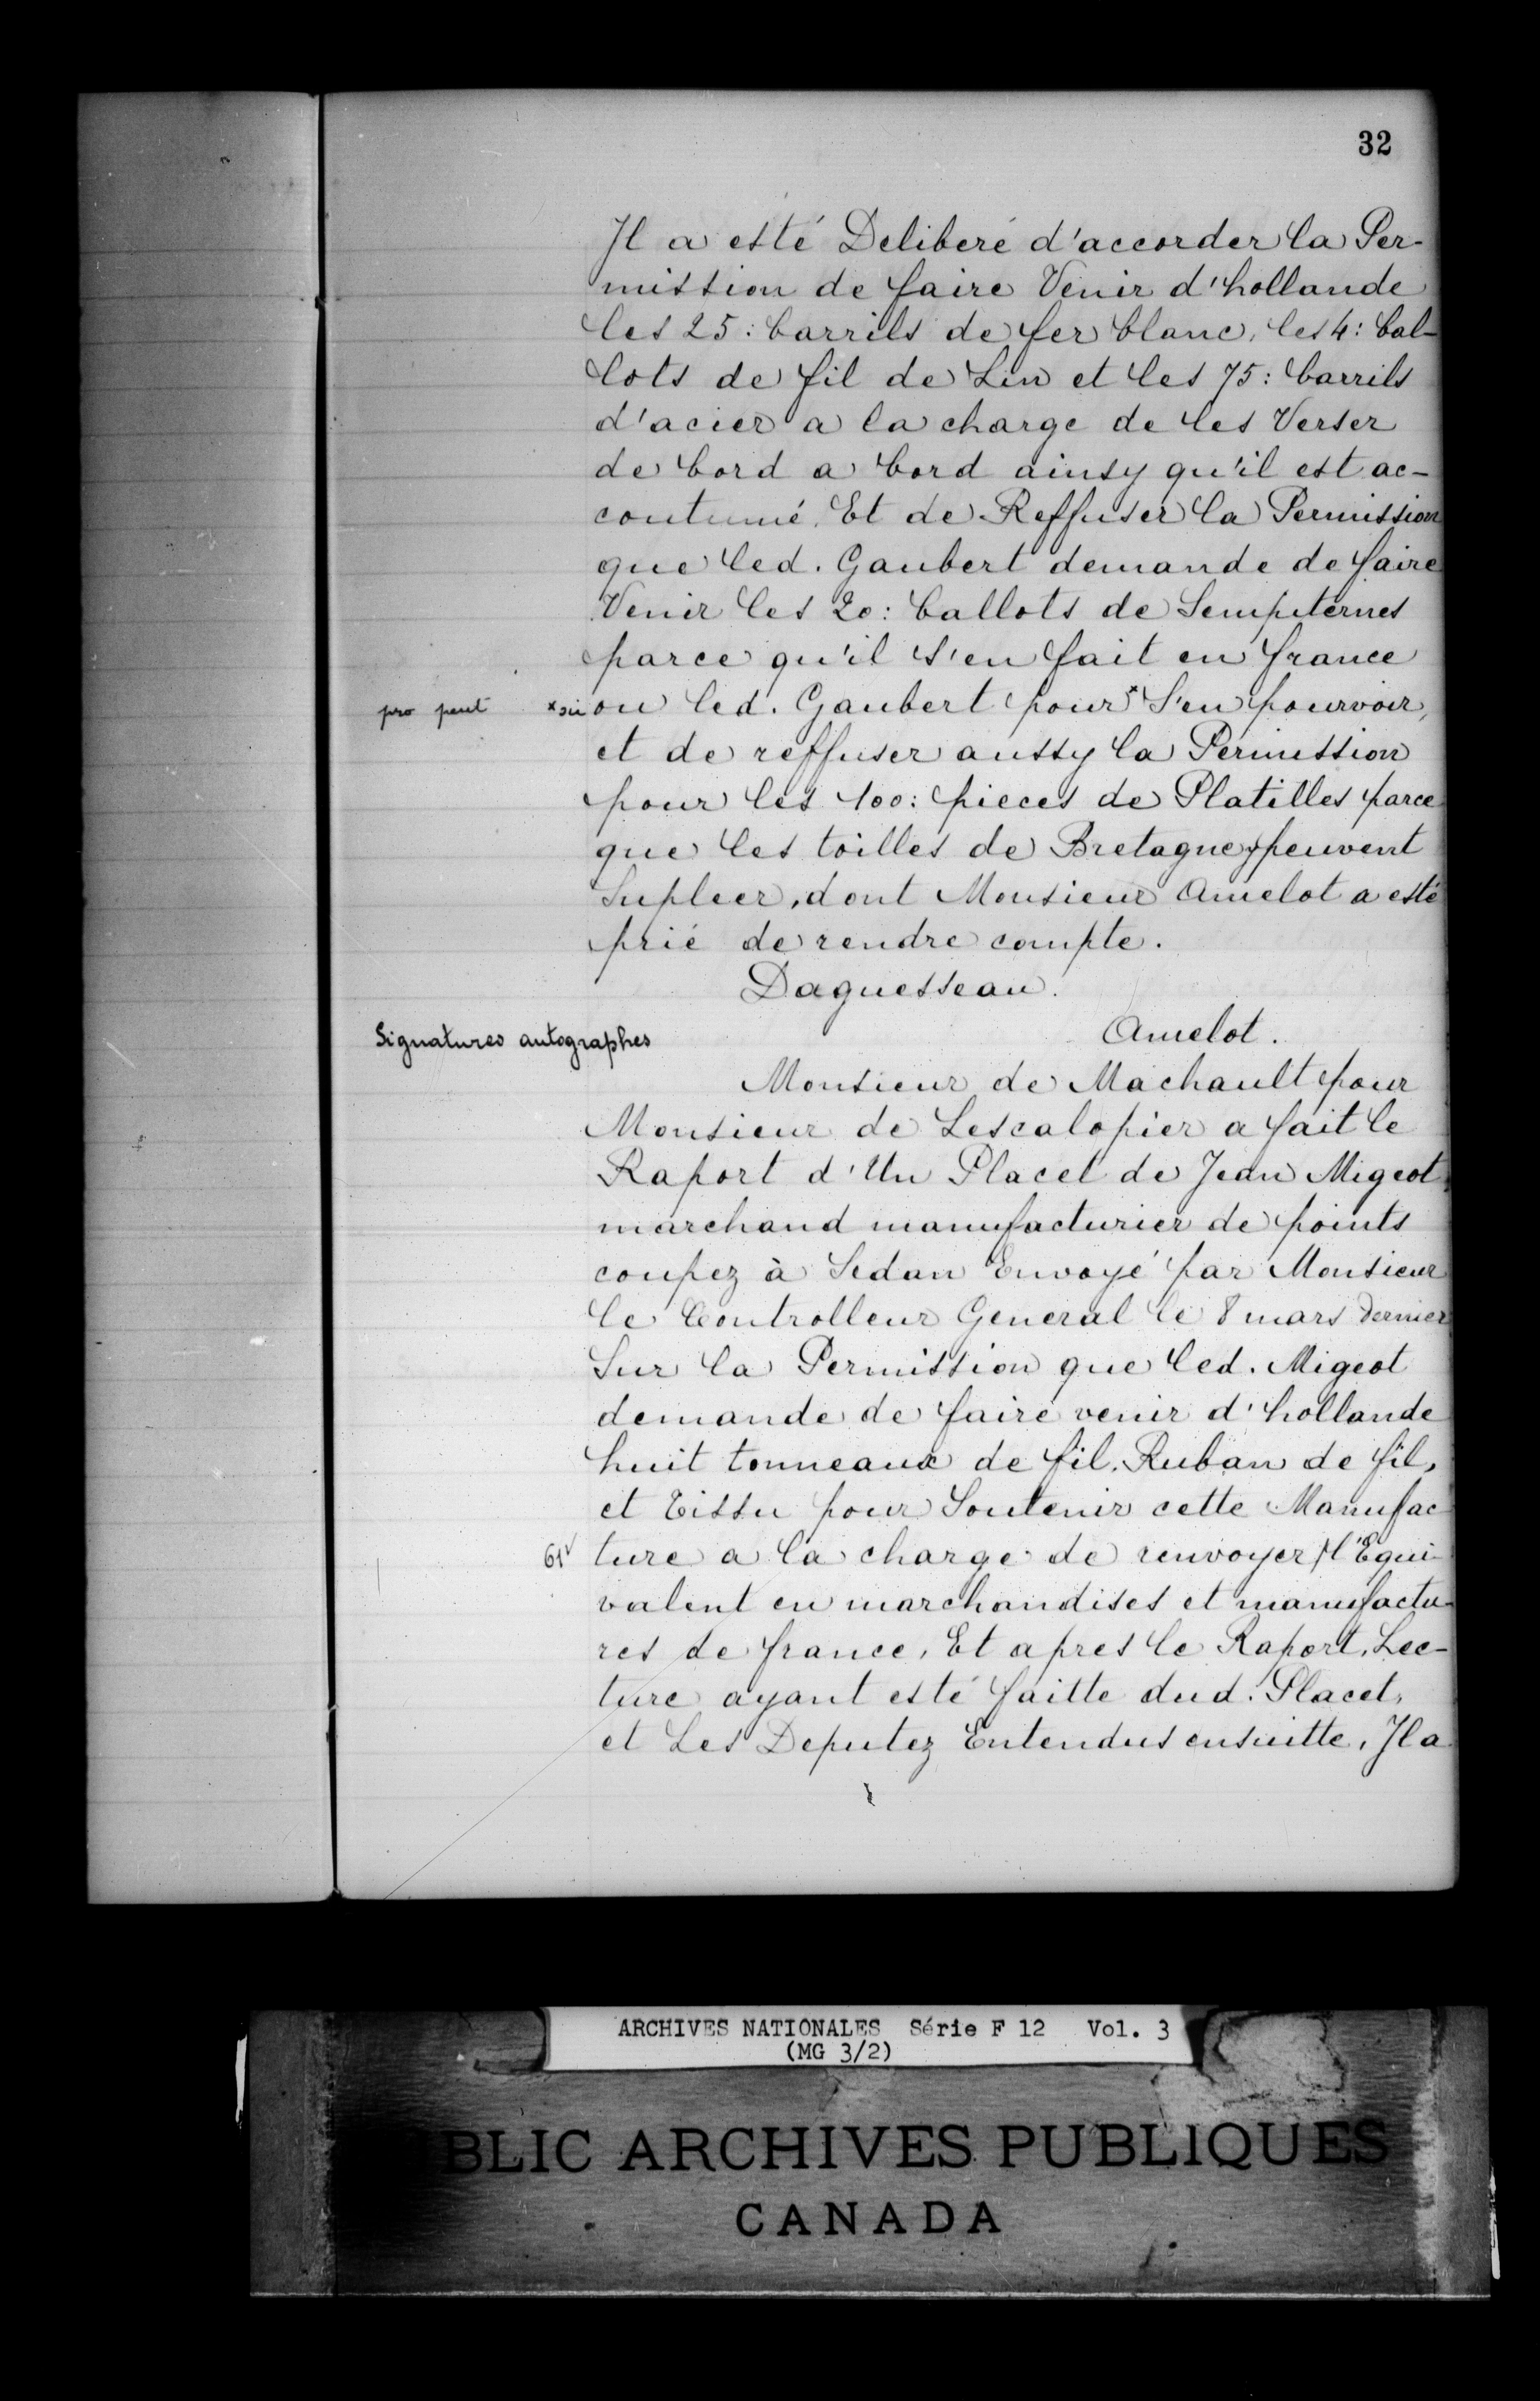 32
Il a esté Deliberé d'accorder la Per-
mission de faire Venir d'hollande
les 25: barrils de fer blanc, les 4: bal-
lots de fil de Lin et les 75: barrils
d'acier a la charge de les Verser
de bord a bord ainsy qu'il est ac-
coutumé. Et de Reffuser la Permission
que led. Gaubert demande de faire
Venir les 20: ballots de Sempiternes
parce qu'il s'en fait en france
pro peut × sic ou led. Gaubert pour× S'en pourvoir,
et de reffuser aussy la Permission
pour les 100: pieces de Platilles parce
que les toilles de Bretagne y peuvent
Supleer, dont Monsieur Amelot a esté
prié de rendre compte.
Daguesseau.
Signatures autographes Amelot.
Monsieur de Machault pour
Monsieur de Lescalopier a fait le
Raport d'Un Placet de Jean Migeot
marchand manufacturier de points
coupez à Sedan Envoyé par Monsieur
le Controlleur General le 8 mars dernier
Sur la Permission que led. Migeot
demande de faire venir d'hollande
huit tonneaux de fil. Ruban de fil,
et Tissu pour Soutenir cette Manufac
61v ture a la charge de renvoyer /l'Equi-
valent en marchandises et manufactu-
res de france, Et apres le Raport, Lec-
ture ayant esté faitte dud. Placet,
et Les Deputez Entendus ensuitte, Il a
ARCHIVES NATIONALES Série F 12 Vol. 3
(MG 3/2)
BLIC ARCHIVES PUBLIQUES
CANADA